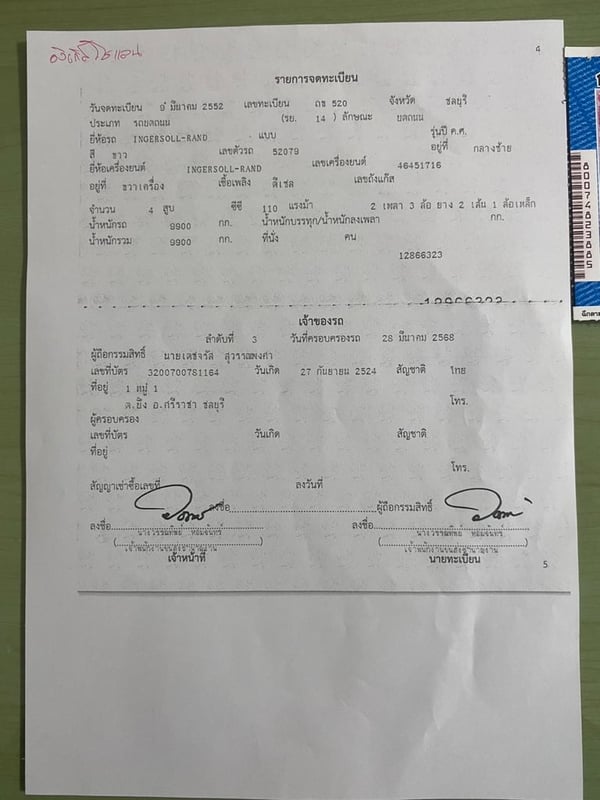 4
รายการจดทะเบียน
วันจดทะเบียน 9 มีนาคม 2552 เลขทะเบียน ถข 520 จังหวัด ชลบุรี
ประเภท รถบดถนน (รย. 14 ) ลักษณะ บดถนน
ยี่ห้อรถ INGERSOLL-RAND แบบ รุ่นปี ค.ศ.
สี ขาว เลขตัวรถ 52079 อยู่ที่ กลางซ้าย
ยี่ห้อเครื่องยนต์ INGERSOLL-RAND เลขเครื่องยนต์ 46451716
อยู่ที่ ขวาเครื่อง เชื้อเพลิง ดีเซล เลขถังแก๊ส
จำนวน 4 สูบ ซีซี 110 แรงม้า 2 เพลา 3 ล้อ ยาง 2 เส้น 1 ล้อเหล็ก
น้ำหนักรถ 9900 กก. น้ำหนักบรรทุก/น้ำหนักลงเพลา กก.
น้ำหนักรวม 9900 กก. ที่นั่ง คน
12866323
เจ้าของรถ
ลำดับที่ 3 วันที่ครอบครองรถ 28 มีนาคม 2568
ผู้ถือกรรมสิทธิ์ นายเดชจรัส สุวรรณพงศา
เลขที่บัตร 3200700781164 วันเกิด 27 กันยายน 2524 สัญชาติ ไทย
ที่อยู่ 1 หมู่ 1
ต.บึง อ.ศรีราชา ชลบุรี โทร.
ผู้ครอบครอง
เลขที่บัตร วันเกิด สัญชาติ
ที่อยู่
โทร.
สัญญาเช่าซื้อเลขที่ ลงวันที่
ลงชื่อ ผู้ถือกรรมสิทธิ์
ลงชื่อ ลงชื่อ
นางวรรณทิพย์ หอมจันทร์ นางวรรณทิพย์ หอมจันทร์
เจ้าพนักงานขนส่งชำนาญงาน เจ้าพนักงานขนส่งชำนาญงาน
เจ้าหน้าที่ นายทะเบียน
5
80074823885